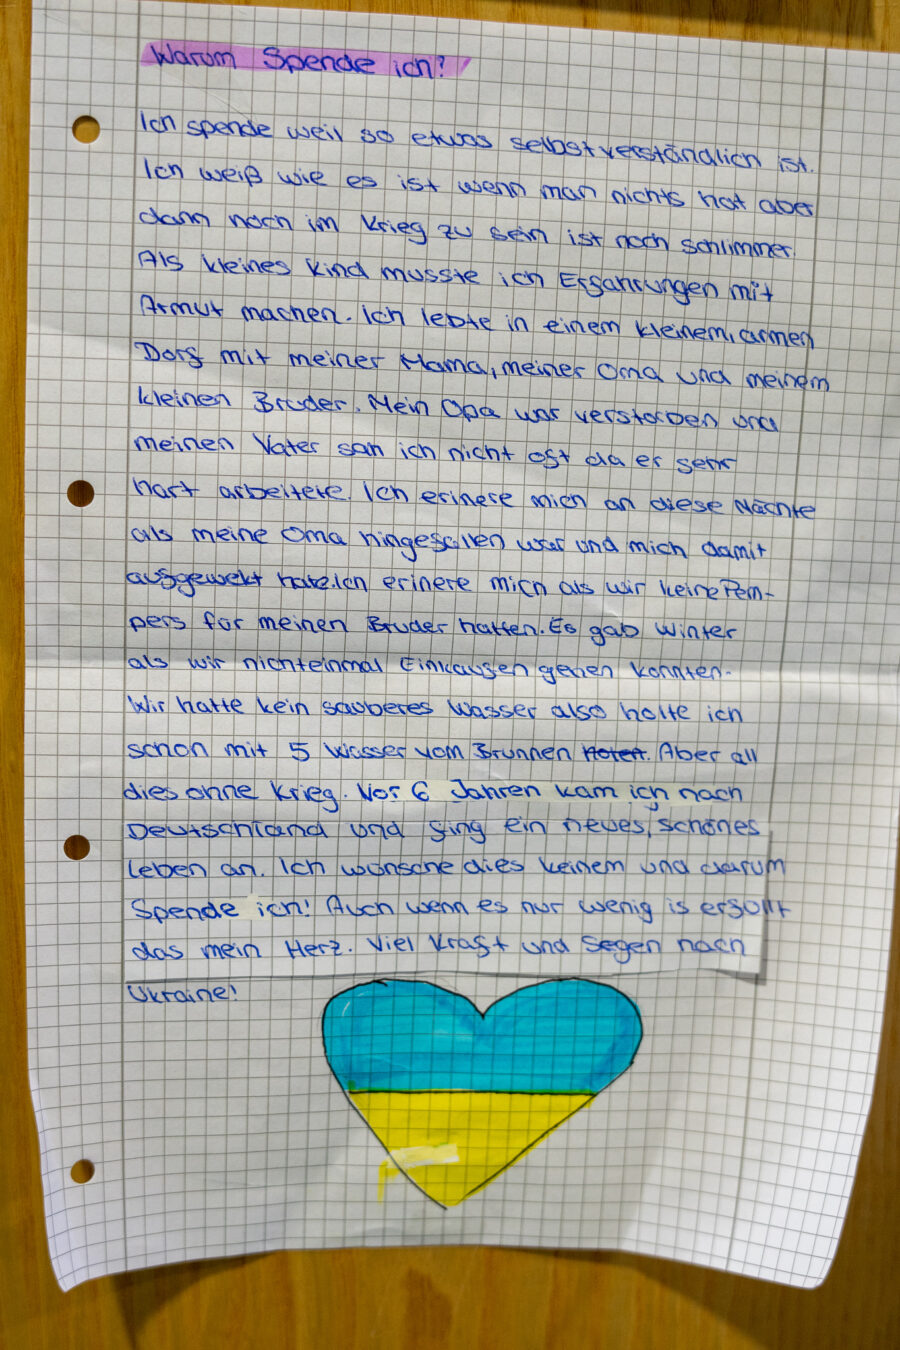 Warum Spende ich?
Ich spende weil so etwas selbstverständlich ist.
Ich weiß wie es ist wenn man nichts hat aber
dann noch im Krieg zu sein ist noch schlimmer.
Als kleines Kind musste ich Erfahrungen mit
Armut machen. Ich lebte in einem kleinem, armen
Dorf mit meiner Mama, meiner Oma und meinem
kleinen Bruder. Mein Opa war verstorben und
meinen Vater sah ich nicht oft da er sehr
hart arbeitete. Ich erinere mich an diese Nächte
als meine Oma hingefallen war und mich damit
aufgewekt hate. Ich erinere mich als wir keine Pem-
pers für meinen Bruder hatten. Es gab Winter
als wir nichteinmal Einkaufen gehen konnten.
Wir hatte kein sauberes Wasser also holte ich
schon mit 5 Wasser vom Brunnen holen. Aber all
dies ohne Krieg. Vor 6 Jahren kam ich nach
Deutschland und fing ein neues, schönes
Leben an. Ich wünsche dies keinem und darum
Spende ich! Auch wenn es nur wenig is erfüllt
das mein Herz. Viel Kraft und Segen nach
Ukraine!